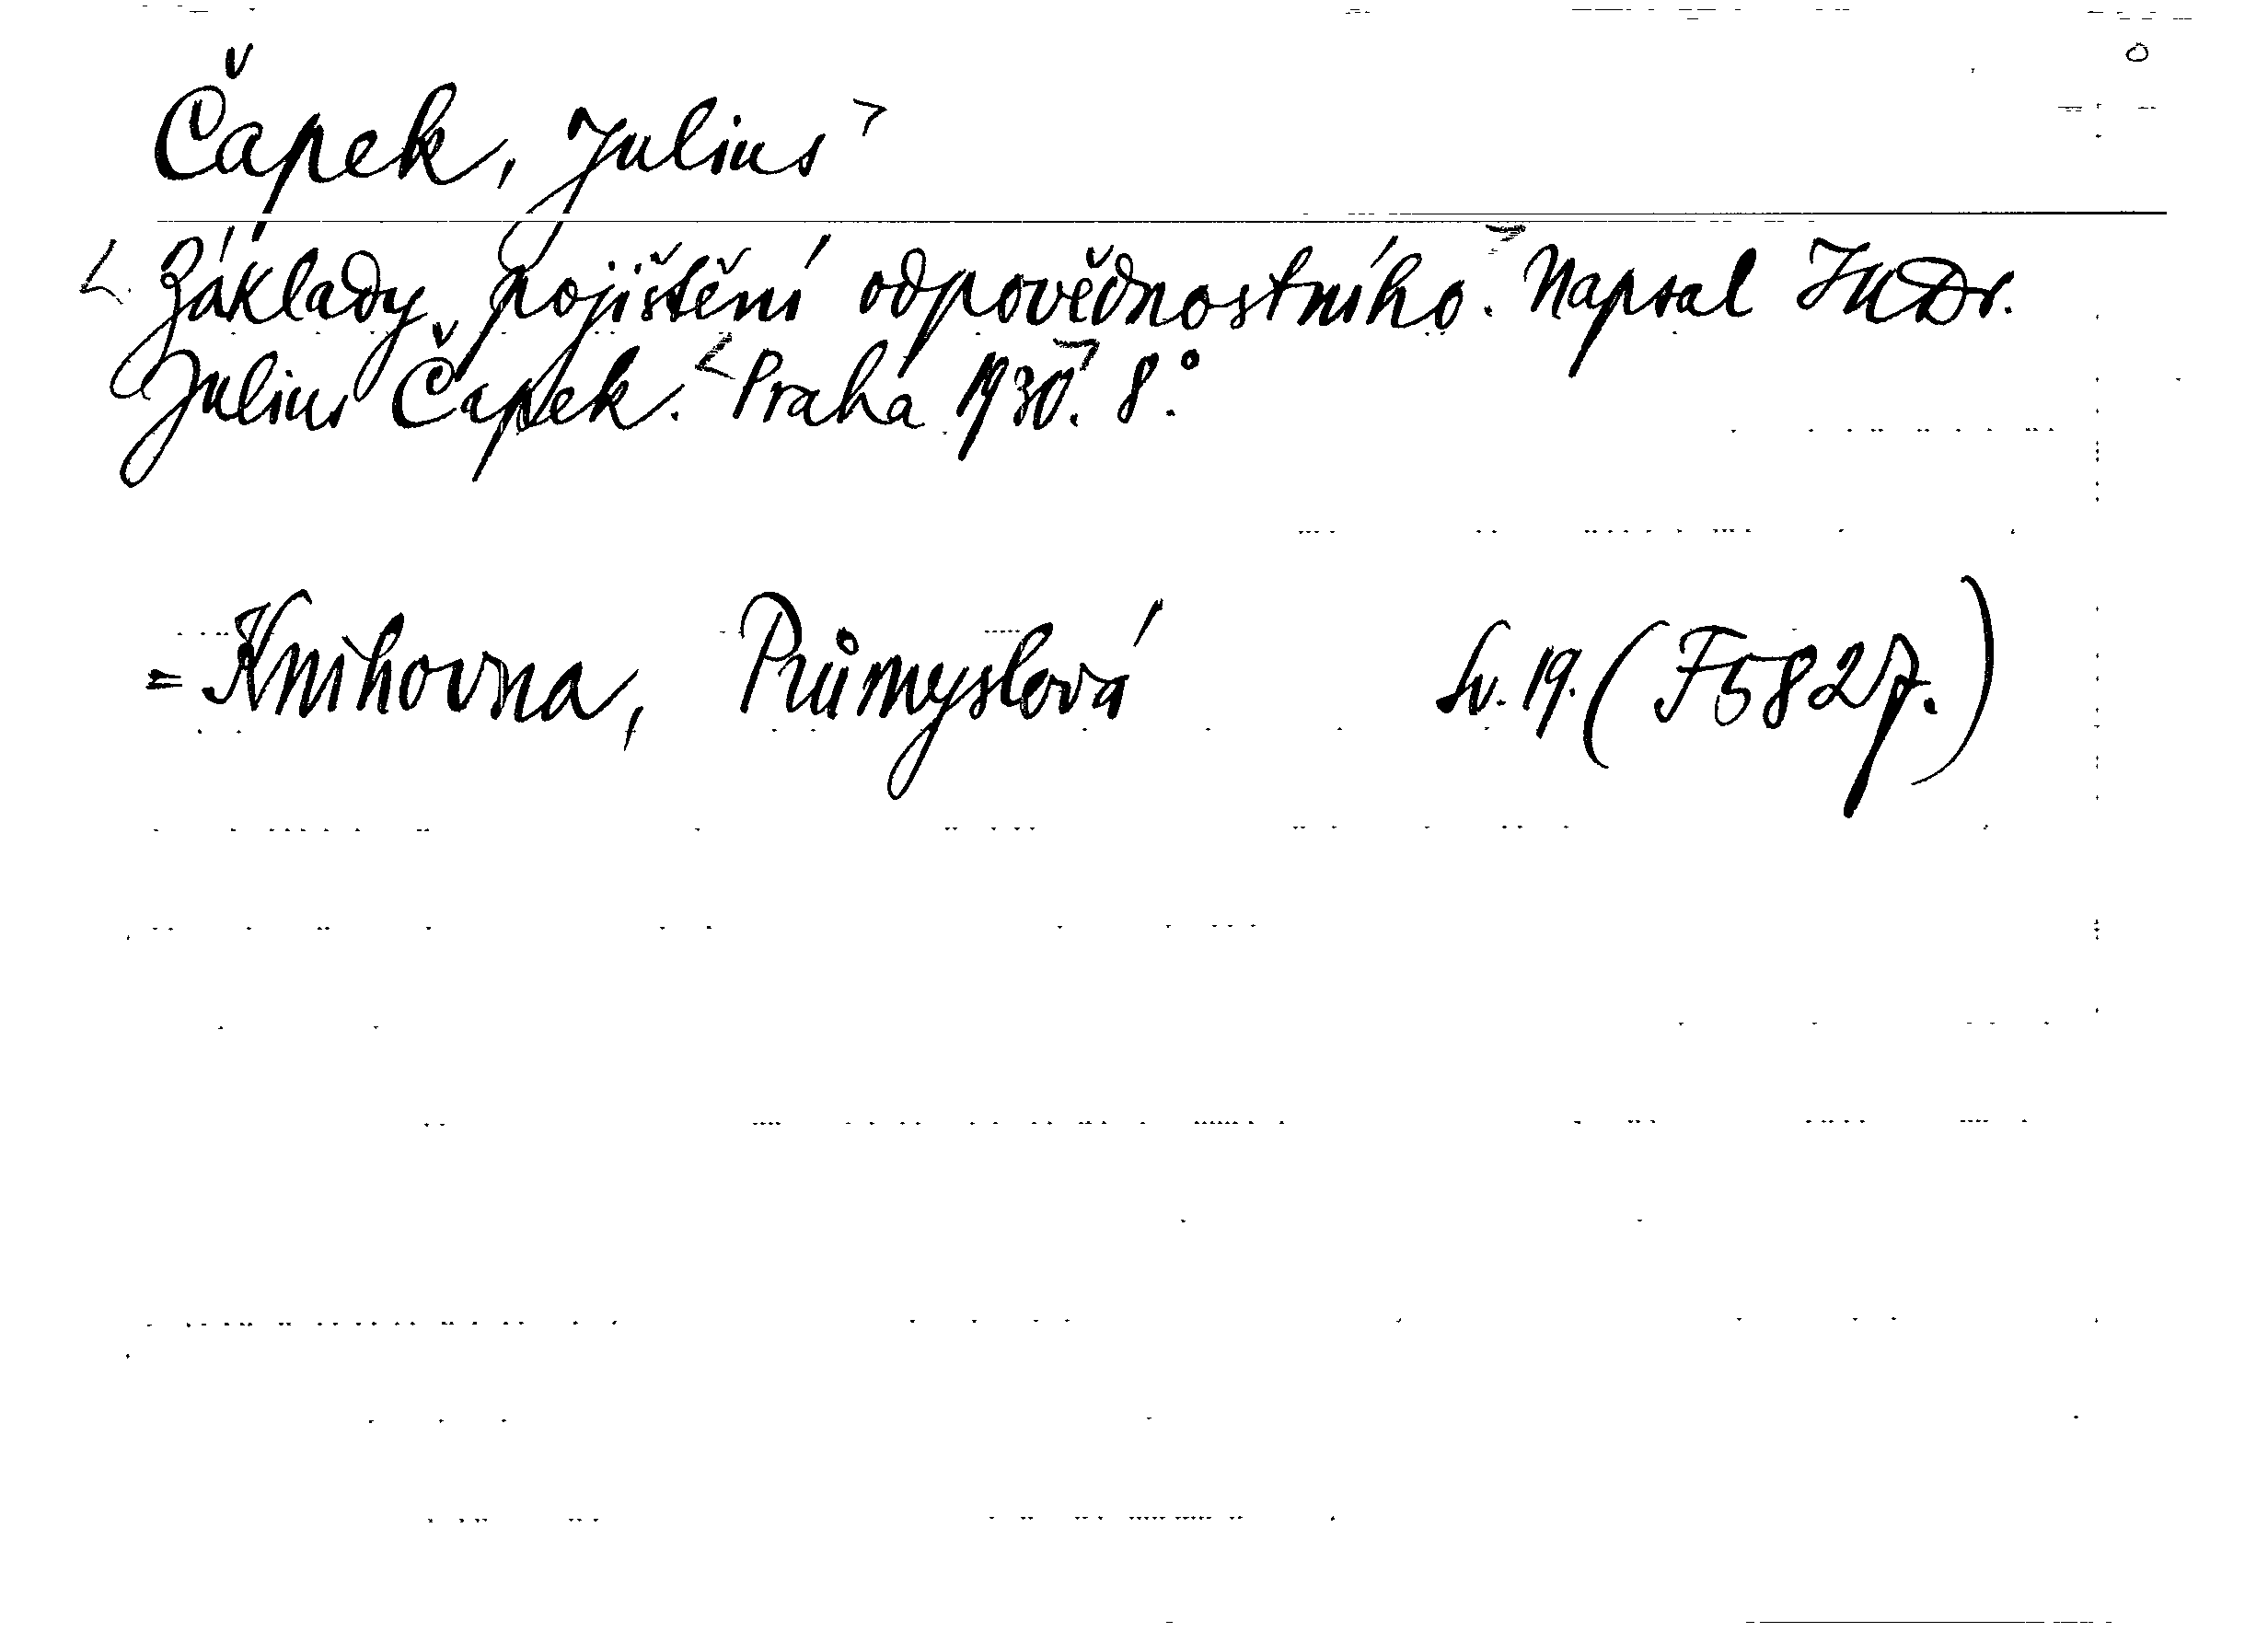 Čapek, Julius
Základy pojištění odpovědnostního. Napsal JUDr.
Julius Čapek. Praha 1930. 8°.
= Knihovna, Průmyslová Sv. 19. (F 5827.)